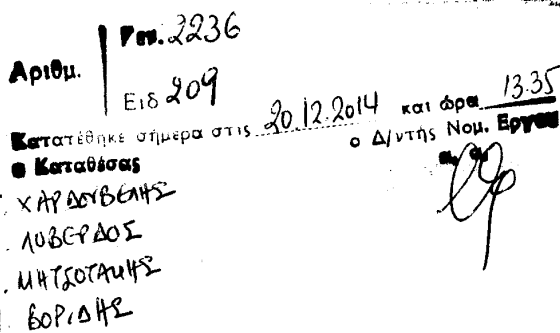 Αριθμ.
Γεν. 2236
Ειδ 209
Κατατέθηκε σήμερα στις 20.12.2014 και ώρα 13.35
ο Καταθέσας
ο Δ/ντής Νομ. Εργου
α. α.
ΧΑΡΔΟΥΒΕΛΗΣ
ΛΟΒΕΡΔΟΣ
ΜΗΤΣΟΤΑΚΗΣ
ΒΟΡΙΔΗΣ